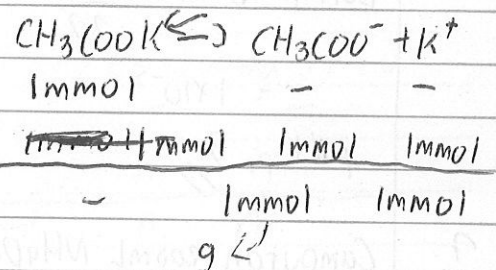 CH₃COOK ⇌ CH₃COO⁻ + K⁺
1mmol - -
1mmol 1mmol 1mmol
- 1mmol 1mmol